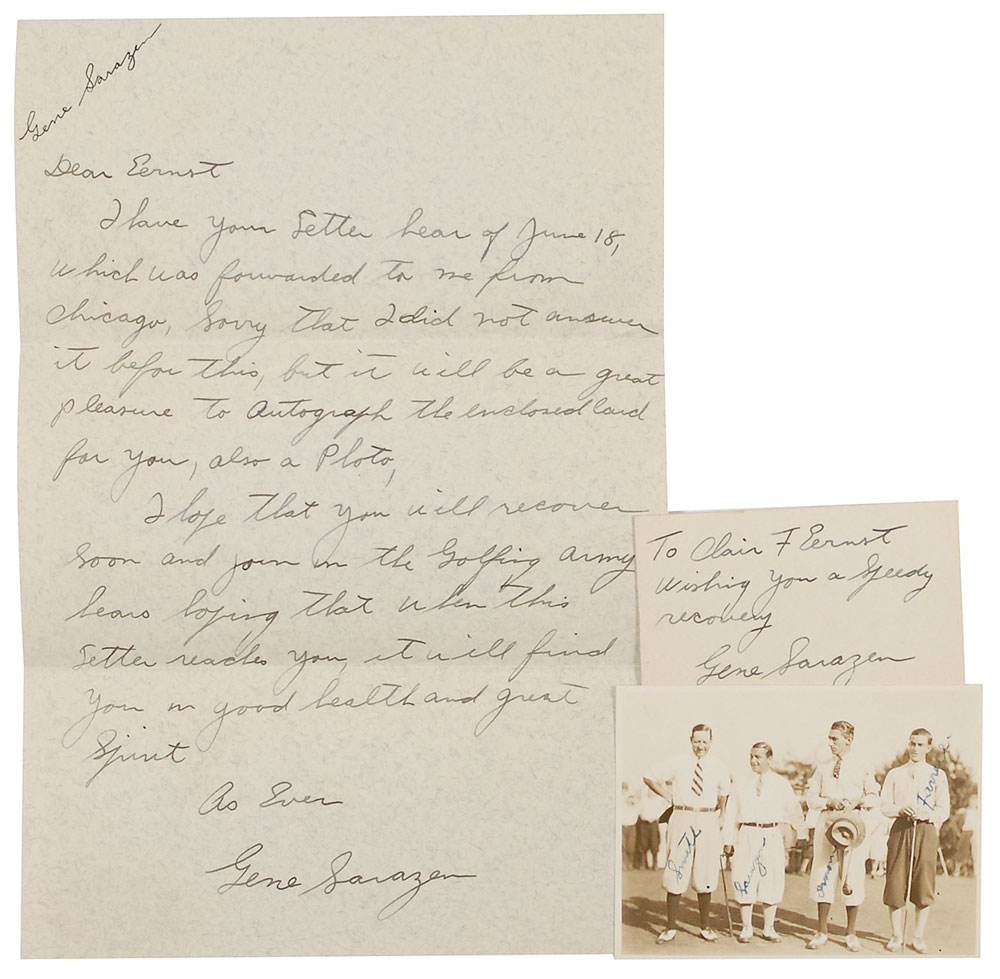 Gene Sarazen
Dear Eernst
I have your letter hear of June 18,
which was forwarded to me from
Chicago, Sorry that I did not answer
it befor this, but it will be a great
pleasure to Autograph the enclosed Card
for you, also a Photo,
I hope that you will recover
soon and join in the Golfing army
hears hoping that when this
letter reaches you, it will find
you in good health and great
Spirit
As Ever
Gene Sarazen
To Clair F Eernst
Wishing you a Speedy
recovery
Gene Sarazen
Smith
Sarazen
Farrell